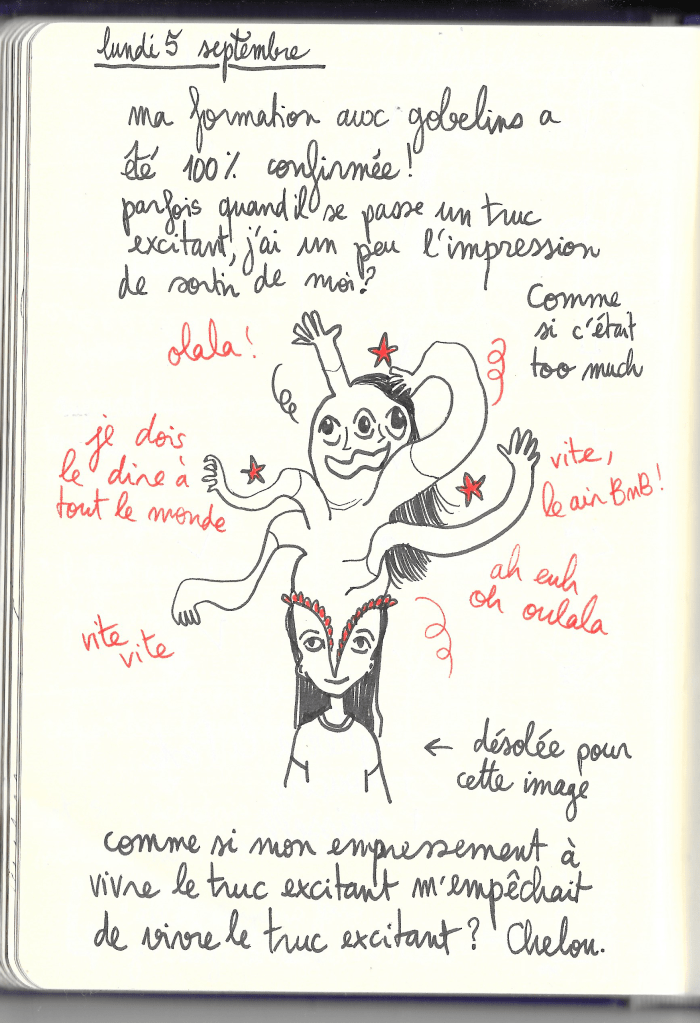 lundi 5 septembre
ma formation avec gobelins a
été 100% confirmée!
parfois quand il se passe un truc
excitant, j'ai un peu l'impression
de sortir de moi?
Comme
si c'était
too much
olala!
je dois
le dire à
tout le monde
vite,
le air BmB!
ah euh
oh oulala
vite
vite
← désolée pour
cette image
comme si mon empressement à
vivre le truc excitant m'empêchait
de vivre le truc excitant? Chelou.